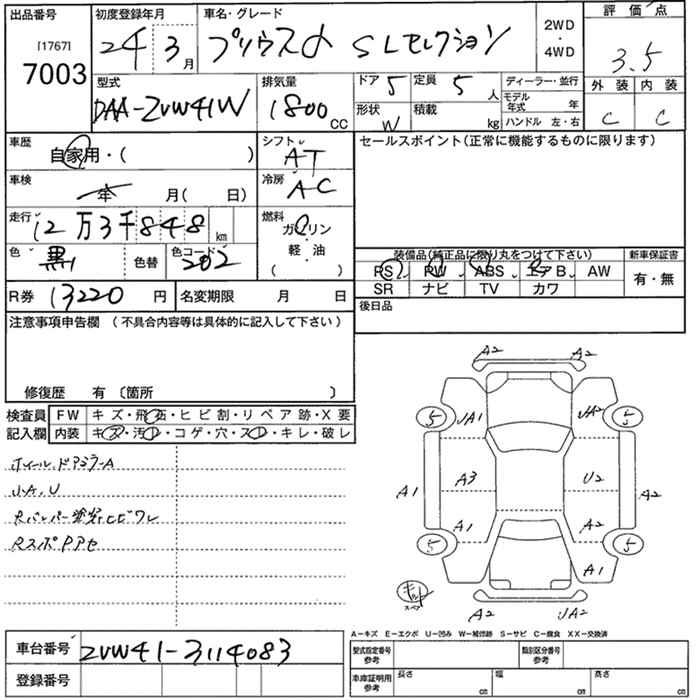 出品番号 初度登録年月 車名・グレード 2WD・4WD 評価点
[1767] 7003 24 3月 プリウスα SLセレクション 3.5
型式 排気量 ドア 5 定員 5人 ディーラー・並行 外装 内装
DAA-ZVW41W 1800cc 形状 W 積載 kg モデル年式 年 ハンドル 左・右 C C
車歴 自家用・( ) シフト AT セールスポイント(正常に機能するものに限ります)
車検 年 月( 日) 冷房 AC
走行 12万3千848km 燃料 ガソリン・軽・油 ( )
色 黒 色替 色コード 202 装備品(純正品に限り丸をつけて下さい) 新車保証書
PS PW ABS エアB AW 有・無
SR ナビ TV カワ
R券 13220円 名変期限 月 日 後日品
注意事項申告欄 (不具合内容等は具体的に記入して下さい)
修復歴 有 〔箇所 〕
検査員 FW キズ・飛石・ヒビ割・リペア跡・X要
記入欄 内装 キズ・汚レ・コゲ・穴・スレ・キレ・破レ
ホイール、ドアミラーA
J.A、U
Rバンパー塗装ヒビワレ
RスポPアセ
A2 A2
5 JA1 JA2 5
A1 A3 U2 A2
A1 A2
5 5
A1
キット スペア
A2 JA2
A-キズ E-エクボ U-凹み W-補修跡 S-サビ C-腐食 XX-交換済
車台番号 ZVW41-3114083 型式指定番号 参考 類別区分番号 参考
登録番号 車庫証明用 参考 長さ cm 幅 cm 高さ cm